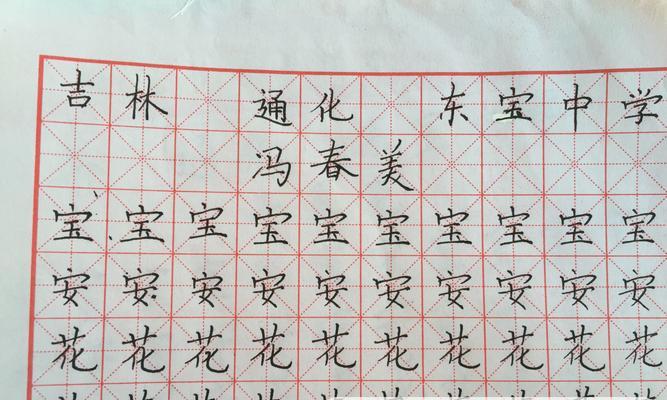 吉林 通化 东宝中学
冯春美
宝宝宝宝宝宝宝宝宝宝
安安安安安安安安安安
花花花花花花花花花花